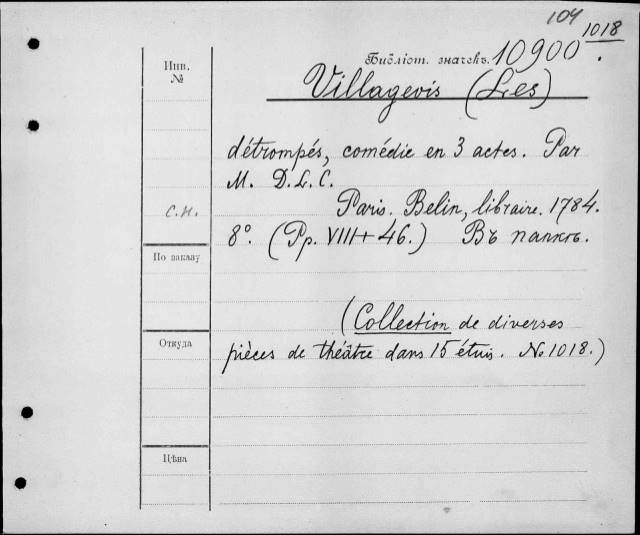 104
1018
Инв.
№
Библіот. значекъ. 10900
Villageois (Les)
détrompés, comédie en 3 actes. Par
M. D.L.C.
С.Н.
Paris. Belin, libraire. 1784.
8°. (Pp. VIII + 46.) Въ папкѣ.
По заказу
(Collection de diverses
Откуда
pièces de théâtre dans 15 étuis. No 1018.)
Цѣна